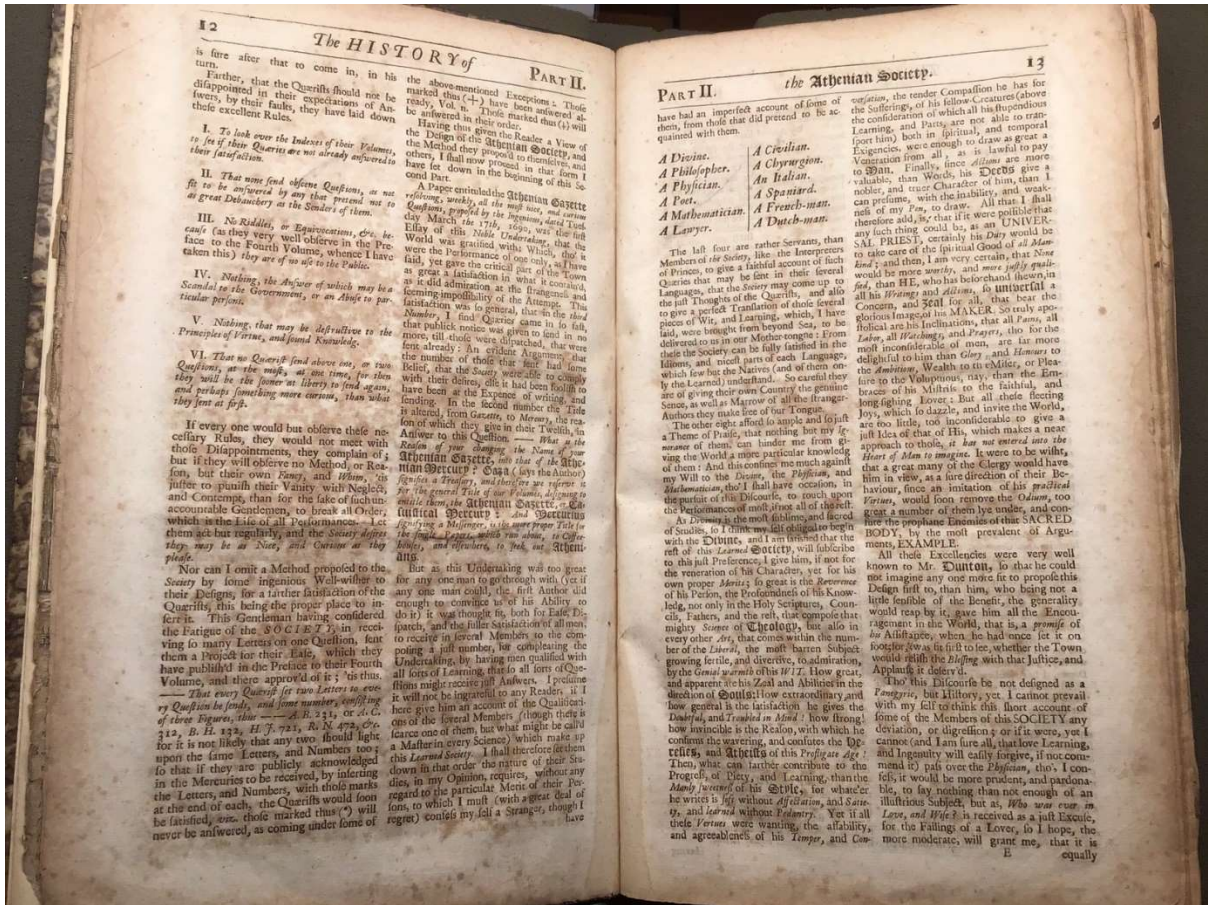 12
The HISTORY of
PART II.
is sure after that to come in, in his
turn.
Farther, that the Quærists should not be
disappointed in their expectations of An-
swers, by their faults, they have laid down
these excellent Rules.
I. To look over the Indexes of their Volumes,
to see if their Queries are not already answered to
their satisfaction.
II. That none send obscene Questions, as not
fit to be answered by any that pretend not to
as great Debauchery as the Senders of them.
III. No Riddles, or Equivocations, &c. be-
cause (as they very well observe in the Pre-
face to the Fourth Volume, whence I have
taken this) they are of no use to the Public.
IV. Nothing, the Answer of which may be a
Scandal to the Government, or an Abuse to par-
ticular persons.
V. Nothing, that may be destructive to the
Principles of Virtue, and sound Knowledg.
VI. That no Quærist send above one, or two
Questions, at the most, at one time, for then
they will be the sooner at liberty to send again,
and perhaps something more curious, than what
they sent at first.
If every one would but observe these ne-
cessary Rules, they would not meet with
those Disappointments, they complain of;
but if they will observe no Method, or Rea-
son, but their own Fancy, and Whim, 'tis
juster to punish their Vanity with Neglect,
and Contempt, than for the sake of such un-
accountable Gentlemen, to break all Order,
which is the Life of all Performances. Let
them act but regularly, and the Society desires
they may be as Nice, and Curious as they
please.
Nor can I omit a Method proposed to the
Society by some ingenious Well-wisher to
their Designs, for a farther satisfaction of the
Quærists, this being the proper place to in-
sert it. This Gentleman having considered
the Fatigue of the SOCIETY, in recei-
ving so many Letters on one Question, sent
them a Project for their Ease, which they
have publish'd in the Preface to their Fourth
Volume, and there approv'd of it; 'tis thus.
—— That every Quærist set two Letters to eve-
ry Question he sends, and some number, consisting
of three Figures, thus —— A. B. 231, or A. C.
312, B. H. 132, H. J. 721, R. N. 472, &c.
for it is not likely that any two should light
upon the same Letters, and Numbers too;
so that if they are publicly acknowledged
in the Mercuries to be received, by inserting
the Letters, and Numbers, with those marks
at the end of each, the Quærists would soon
be satisfied, viz. those marked thus (*) will
never be answered, as coming under some of
the above-mentioned Exceptions: Those
marked thus (+) have been answered al-
ready, Vol. n. Those marked thus (‡) will
be answered in their order.
Having thus given the Reader a View of
the Design of the Athenian Society, and
the Method they propos'd to themselves, and
others, I shall now proceed in that form I
have set down in the beginning of this Se-
cond Part.
A Paper entituled the Athenian Gazette
resolving, weekly, all the most nice, and curious
Questions, proposed by the Ingenious, dated Tues-
day March the 17th, 1690, was the first
Essay of this Noble Undertaking, that the
World was gratified with: Which, tho' it
were the Performance of one only, as I have
said, yet gave the critical part of the Town
as great a satisfaction in what it contain'd,
as it did admiration at the strangeness and
seeming impossibility of the Attempt. This
satisfaction was so general, that in the third
Number, I find Quæries came in so fast,
that publick notice was given to send in no
more, till those were dispatched, that were
sent already: An evident Argument, that
the number of those that sent had some
Belief, that the Society were able to comply
with their desires, else it had been foolish to
have been at the Expence of writing, and
sending. In the second number the Title
is altered, from Gazette, to Mercury, the rea-
son of which they give in their Twelfth, in
Answer to this Question. —— What is the
Reason of your changing the Name of your
Athenian Gazette, into that of the Athe-
nian Mercury? Gaza (says the Author)
signifies a Treasury, and therefore we reserve it
for the general Title of our Volumes, designing to
entitle them, the Athenian Gazette, or Ca-
suistical Mercury: And Mercurius
signifying a Messenger, is the more proper Title for
the single Papers, which run about, to Coffee-
houses, and elsewhere, to seek out Atheni-
ans.
But as this Undertaking was too great
for any one man to go through with (yet if
any one man could, the first Author did
enough to convince us of his Ability to
do it) it was thought fit, both for Ease, Dis-
patch, and the fuller Satisfaction of all men,
to receive in several Members to the com-
posing a just number, for compleating the
Undertaking, by having men qualified with
all sorts of Learning, that so all sorts of Que-
stions might receive just Answers. I presume
it will not be ingrateful to any Readers, if I
here give him an account of the Qualificati-
ons of the several Members (though there is
scarce one of them, but what might be call'd
a Master in every Science) which make up
this Learned Society. I shall therefore set them
down in that order the nature of their Stu-
dies, in my Opinion, requires, without any
regard to the particular Merit of their Per-
sons, to which I must (with a great deal of
regret) confess my self a Stranger, though I
have
PART II.
the Athenian Society.
13
have had an imperfect account of some of
them, from those that did pretend to be ac-
quainted with them.
A Divine.
A Philosopher.
A Physician.
A Poet.
A Mathematician.
A Lawyer.
A Civilian.
A Chyrurgion.
An Italian.
A Spaniard.
A French-man.
A Dutch-man.
The last four are rather Servants, than
Members of the Society, like the Interpreters
of Princes, to give a faithful account of such
Queries that may be sent in their several
Languages, that the Society may come up to
the just Thoughts of the Quærists, and also
to give a perfect Translation of those several
pieces of Wit, and Learning, which, I have
said, were brought from beyond Sea, to be
delivered to us in our Mother-tongue: From
these the Society can be fully satisfied in the
Idioms, and nicest parts of each Language,
which few but the Natives (and of them on-
ly the Learned) understand. So careful they
are of giving their own Country the genuine
Sence, as well as Marrow of all the stranger-
Authors they make free of our Tongue.
The other eight afford so ample and so just
a Theme of Praise, that nothing but my Ig-
norance of them, can hinder me from gi-
ving the World a more particular knowledg
of them: And this confines me much against
my Will to the Divine, the Physician, and
Mathematician, tho' I shall have occasion, in
the pursuit of this Discourse, to touch upon
the Performances of most, if not all of the rest.
As Divinity is the most sublime, and sacred
of Studies, so I think my self obliged to begin
with the Divine, and I am satisfied that the
rest of this Learned Society, will subscribe
to this just Preference, I give him, if not for
the veneration of his Character, yet for his
own proper Merits; so great is the Reverence
of his Person, the Profoundness of his Know-
ledg, not only in the Holy Scriptures, Coun-
cils, Fathers, and the rest, that compose that
mighty Science of Theology, but also in
every other Art, that comes within the num-
ber of the Liberal, the most barren Subject
growing fertile, and divertive, to admiration,
by the Genial warmth of his WIT. How great,
and apparent are his Zeal and Abilities in the
direction of Souls: How extraordinary, and
how general is the satisfaction he gives the
Doubtful, and Troubled in Mind! how strong!
how invincible is the Reason, with which he
confirms the wavering, and confutes the He-
retics, and Atheists of this Profligate Age!
Then, what can farther contribute to the
Progress, of Piety, and Learning, than the
Manly sweetness of his Style, for whate'er
he writes is soft without Affectation, and Satie-
ty, and learned without Pedantry. Yet if all
these Vertues were wanting, the affability,
and agreeableness of his Temper, and Con-
versation, the tender Compassion he has for
the Sufferings, of his fellow-Creatures (above
the consideration of which all his stupendious
Learning, and Parts, are not able to tran-
sport him) both in spiritual, and temporal
Exigencies, were enough to draw as great a
Veneration from all, as is lawful to pay
to Man. Finally, since Actions are more
valuable, than Words, his Deeds give a
nobler, and truer Character of him, than I
can presume, with the inability, and weak-
ness of my Pen, to draw. All that I shall
therefore add, is, that if it were possible that
any such thing could be, as an UNIVER-
SAL PRIEST, certainly his Duty would be
to take care of the spiritual Good of all Man-
kind; and then, I am very certain, that None
would be more worthy, and more justly quali-
fied, than HE, who has beforehand shewn, in
all his Writings and Actions, so universal a
Concern, and Zeal for all, that bear the
glorious Image, of his MAKER. So truly apo-
stolical are his Inclinations, that all Pains, all
Labor, all Watchings, and Prayers, tho for the
most inconsiderable of men, are far more
delightful to him than Glory, and Honours to
the Ambitious, Wealth to the Miser, or Plea-
sure to the Voluptuous, nay, than the Em-
braces of his Mistris to the faithful, and
long sighing Lover: But all these fleeting
Joys, which so dazzle, and invite the World,
are too little, too inconsiderable to give a
just Idea of that of His, which makes a near
approach to those, it has not entered into the
Heart of Man to imagine. It were to be wisht,
that a great many of the Clergy would have
him in view, as a sure direction of their Be-
haviour, since an imitation of his practical
Virtues, would soon remove the Odium, too
great a number of them lye under, and con-
fute the prophane Enemies of that SACRED
BODY, by the most prevalent of Argu-
ments, EXAMPLE.
All these Excellencies were very well
known to Mr. Dunton, so that he could
not imagine any one more fit to propose this
Design first to, than him, who being not a
little sensible of the Benefit, the generality
would reap by it, gave him all the Encou-
ragement in the World, that is, a promise of
his Assistance, when he had once set it on
foot; for it was fit first to see, whether the Town
would relish the Blessing with that Justice, and
Applause it deserv'd.
Tho' this Discourse be not designed as a
Panegyric, but History, yet I cannot prevail
with my self to think this short account of
some of the Members of this SOCIETY any
deviation, or digression; or if it were, yet I
cannot (and I am sure all, that love Learning,
and Ingenuity will easily forgive, if not com-
mend it) pass over the Physician, tho', I con-
fess, it would be more prudent, and pardona-
ble, to say nothing than not enough of an
illustrious Subject, but as, Who was ever in
Love, and Wise? is received as a just Excuse,
for the Failings of a Lover, so I hope, the
more moderate, will grant me, that it is
E
equally